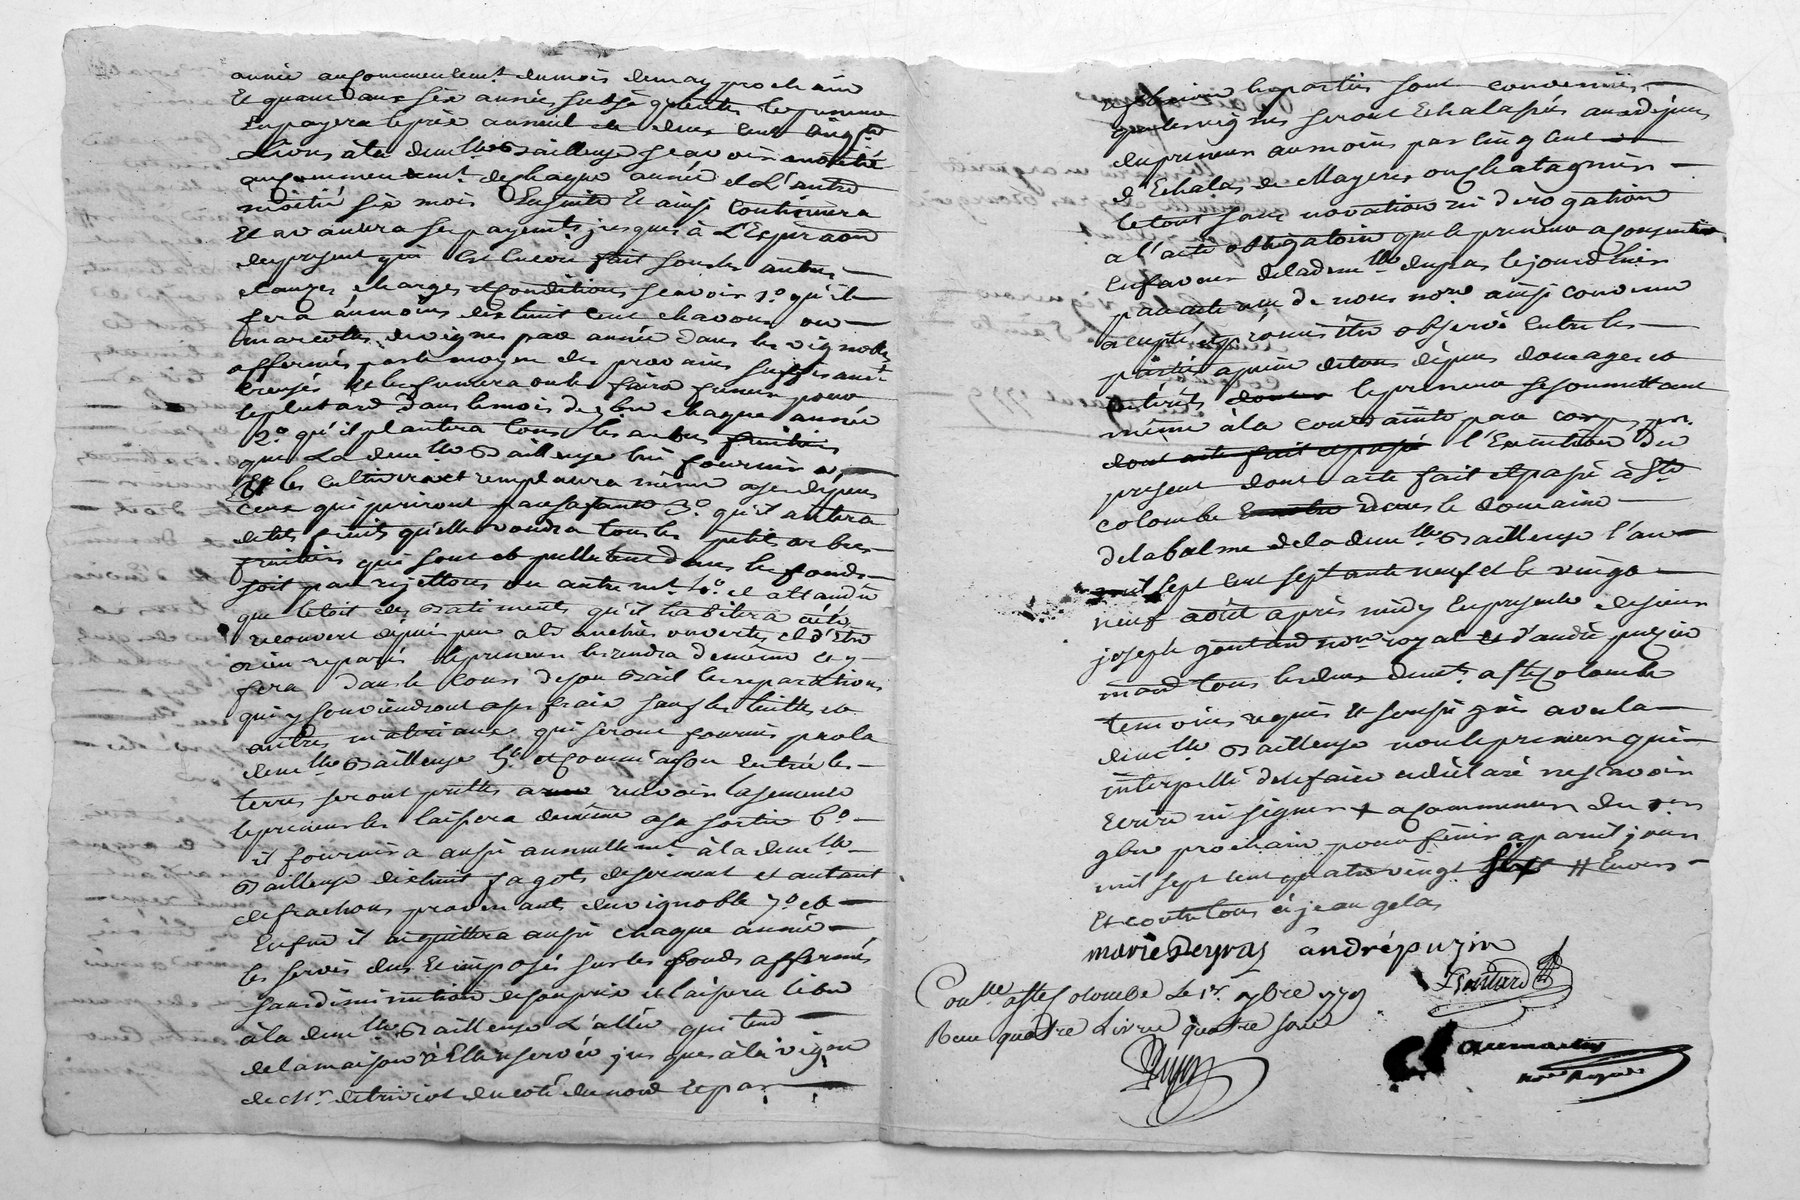 année au commencement du mois de may prochain
Et quant aux six années subséquentes le preneur
En payera le prix annuel de deux cent vingt
Livres à la dem.lle Bailleuse scavoir moitié
au commencement de chaque année et L'autre
moitié six mois Ensuite Et ainsi Continuera
Et avancera ses payem.ts jusques à L'Expiraon
du present qui Est Encore fait sous les autres
clauses charges et conditions scavoir 1.o qu'il
fera au moins cent chavons ou
marcottes de vignes par année dans les vignobles
affermés par le moyen des provains suffisam.t
creusés et les fumera ou les faira fumer pour
le plus tard dans le mois de xbre chaque année
2.o qu'il plantera tous les arbres fruitiers
que La dem.lle Bailleuse lui fournira
Et les cultivera et remplacera même a ses dépens
Ceux qui periront par sa faute 3.o qu'il antera
de tels fruits qu'elle voudra tous les petits arbres
fruitiers qui sont et pulluleront dans les fonds
soit par rejettons ou autrem.t 4.o et attandu
que le toit des Batiments qu'il habitera a été
recouvert depuis peu a la chaux ouvertes et d'être
bien reparés le preneur les rendra de même et y
fera dans le cours de son Bail les reparations
qui y conviendront a ses frais sauf les tuilles et
autres materiaux qui seront fournis par la
dem.lle Bailleuse 5.o et comme a son entrée les
terres seront prettes a recevoir la semence
le preneur les laissera de même a sa sortie 6.o
il fournira aussi annuellem.t à la dem.lle
Bailleuse fagots de serment et autant
de frachons provenants du vignoble 7.o et
Enfin il acquittera aussi chaque année
les servis dus et imposés sur les fonds affermés
sans diminution de son prix et laissera libre
à la dem.lle Bailleuse L'allée qui tend
de la maison à Elle reservée jusques à la vigne
de M.r du coté du nord et par
les parties sont convenues
que les vignes seront Echalassées aux dépens
du preneur au moins par cinq cent
d'Echalas de Mayeres ou Chatagnier
le tout sans novation ni derogation
a l'acte obligatoire que le preneur a consenti
En faveur de lad dem.lle Depras le jourd'hier
par acte reçu de nous no.re ainsi convenu
accepté et promis être observé Entre les
parties a peine de tous dépens domages et
interêts le preneur se soumettant
même à la contrainte par corps pour
l'Execution du
present dont acte fait et passé à S.te
colombe dans le domaine
de la balme de la dem.lle Bailleuse l'an
mil sept cent septante neuf et le vingt
neuf août après midy En presence de sieur
joseph goutard no.re royal et d'andré puzin
tous les deux dem.t a S.te Colombe
temoins requis et soussignés avec la
dem.lle Bailleuse non le preneur qui
interpellé de le faire a declaré ne scavoir
Ecrire ni signer + a commencer du 1er
9bre prochain pour finir a pareil jour
mil sept cent quatre vingt six // Envers
Et contre tous à jean gelas
marie Deyras andré puzin
Goutard
Con.lle a Ste Colombe Le 1.er 7bre 1779
Recu quatre Livres quatre sous
no.re Royal